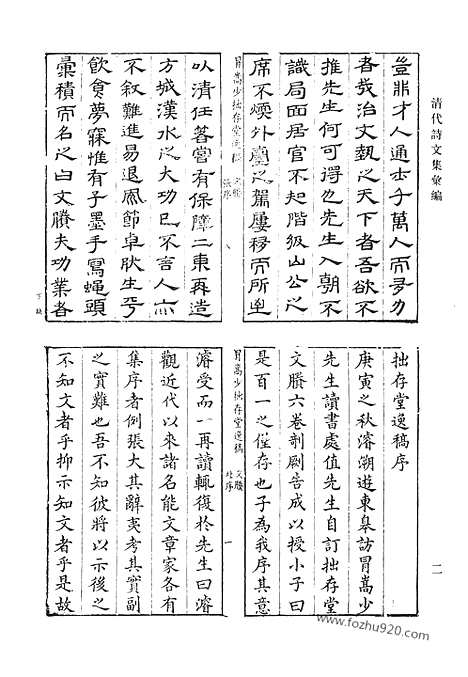 清代詩文集彙編
二
豈非才人通士千萬人而
者哉治文執之天下者吾欲不
推先生何可得也先生入朝不
識局面居官不知階級山公之
席不煗外臺之駕屢移而所至
冒嵩少拙存堂逸稿 文賸 張序 八
以清任著嘗有保障二東再造
方城漢水之大功已不言人亦
不叙難進易退風節卓肰生平
飲食夢寐惟有子墨手寫蝇頭
彙積而名之曰文賸夫功業者
下缺
拙存堂逸稿序
庚寅之秋濬溯遊東皋訪冒嵩少
先生讀書處值先生自訂拙存堂
文賸六卷剞劂告成以授小子曰
是百一之僅存也子為我序其意
冒嵩少拙存堂逸稿 文賸 杜序 一
濬受而一再讀輒復於先生曰濬
觀近代以來諸名能文章家各有
集序者例張大其辭夷考其實副
之實難也吾不知彼將以示後之
不知文者乎抑示知文者乎是故
www.fozhu920.com